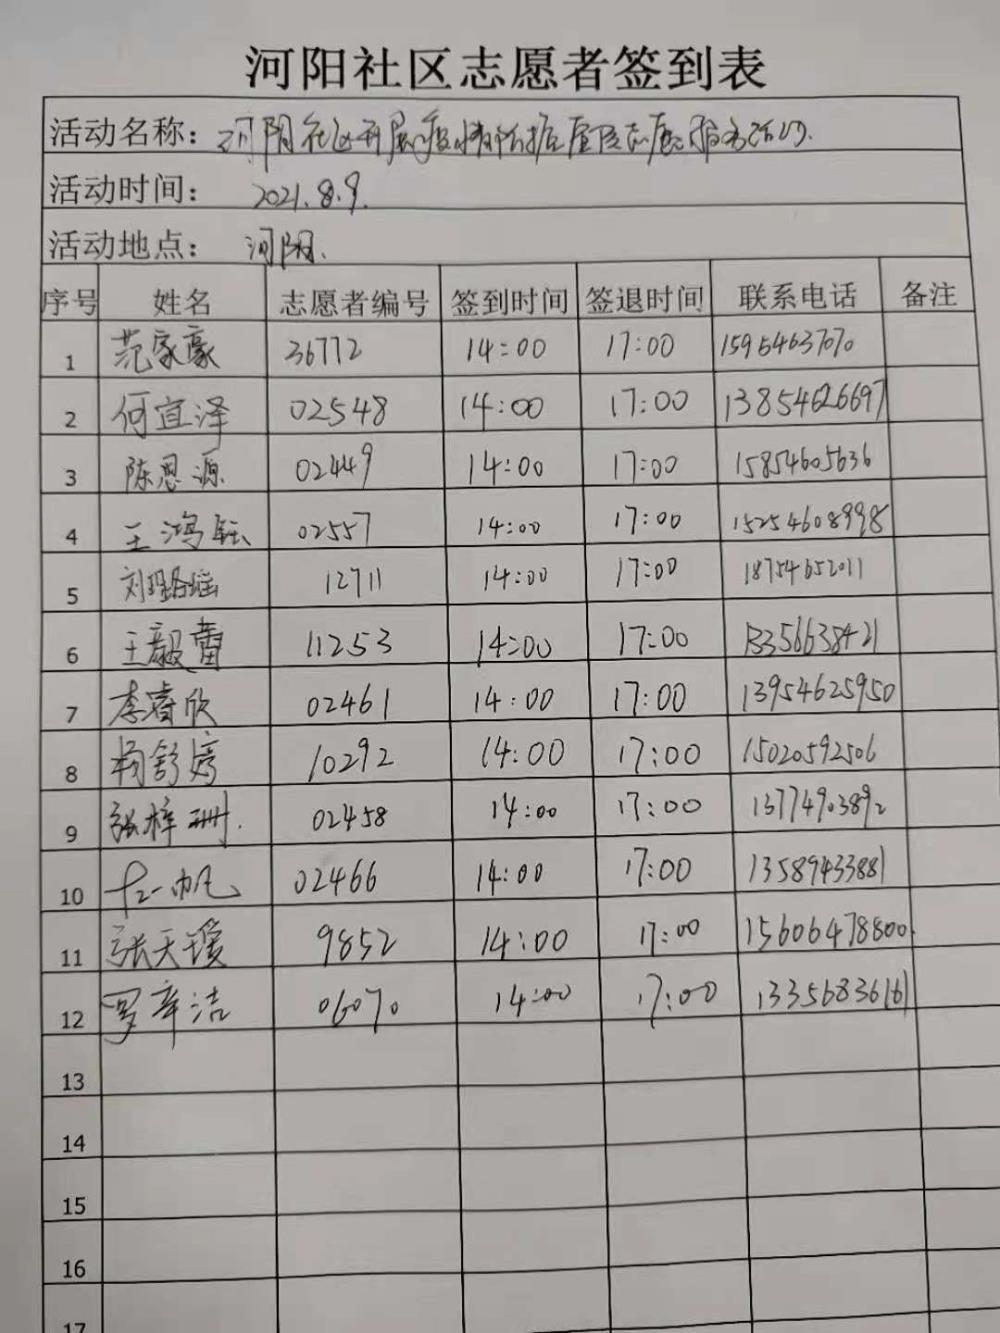 河阳社区志愿者签到表
活动名称：河阳社区开展疫情防控宣传志愿服务活动.
活动时间：2021.8.9.
活动地点：河阳.
序号 姓名 志愿者编号 签到时间 签退时间 联系电话 备注
1 范家豪 36772 14:00 17:00 15954637070
2 何宜泽 02548 14:00 17:00 13854626697
3 陈思源 02449 14:00 17:00 15854605636
4 王鸿钰 02557 14:00 17:00 15254608998
5 刘璐瑶 12711 14:00 17:00 18754652011
6 王毅蕾 11253 14:00 17:00 13356638421
7 李睿欣 02461 14:00 17:00 13954625950
8 杨舒婷 10292 14:00 17:00 15020592506
9 张梓珊. 02458 14:00 17:00 13774903892
10 一帆 02466 14:00 17:00 13589433881
11 张天瑷 9852 14:00 17:00 15606478800
12 罗幸洁 06070 14:00 17:00 13356836161
13
14
15
16
17